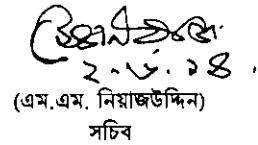 ২.৬.১৪.
(এম.এম. নিয়াজউদ্দিন)
সচিব